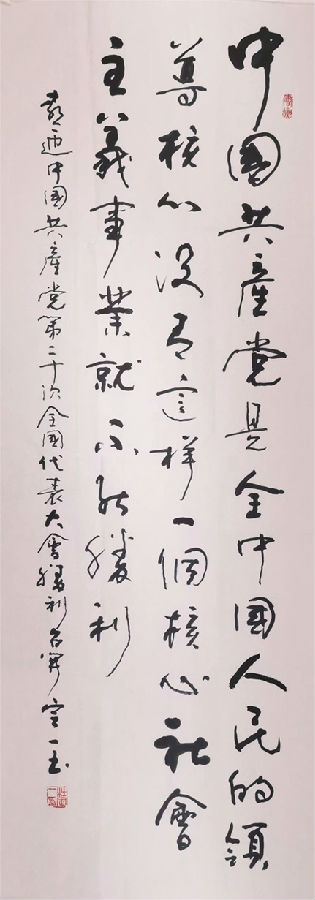 中國共產党是全中國人民的領
導核心没有這样一個核心社會
主義事業就不能勝利
喜迎中國共產党第二十次全國代表大會勝利召開 一玉